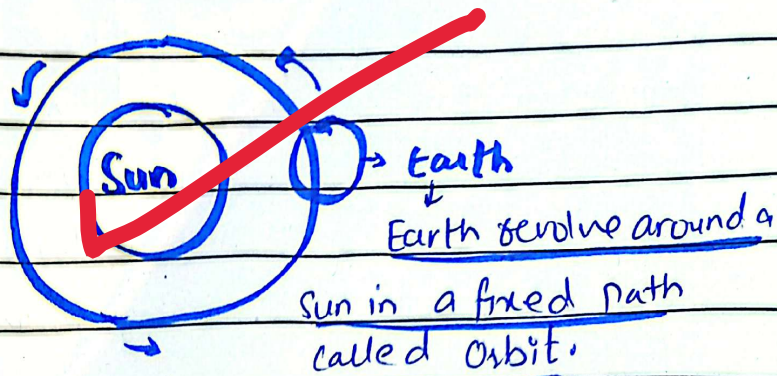 Sun
Earth
Earth revolve around a
Sun in a fixed path
called Orbit.